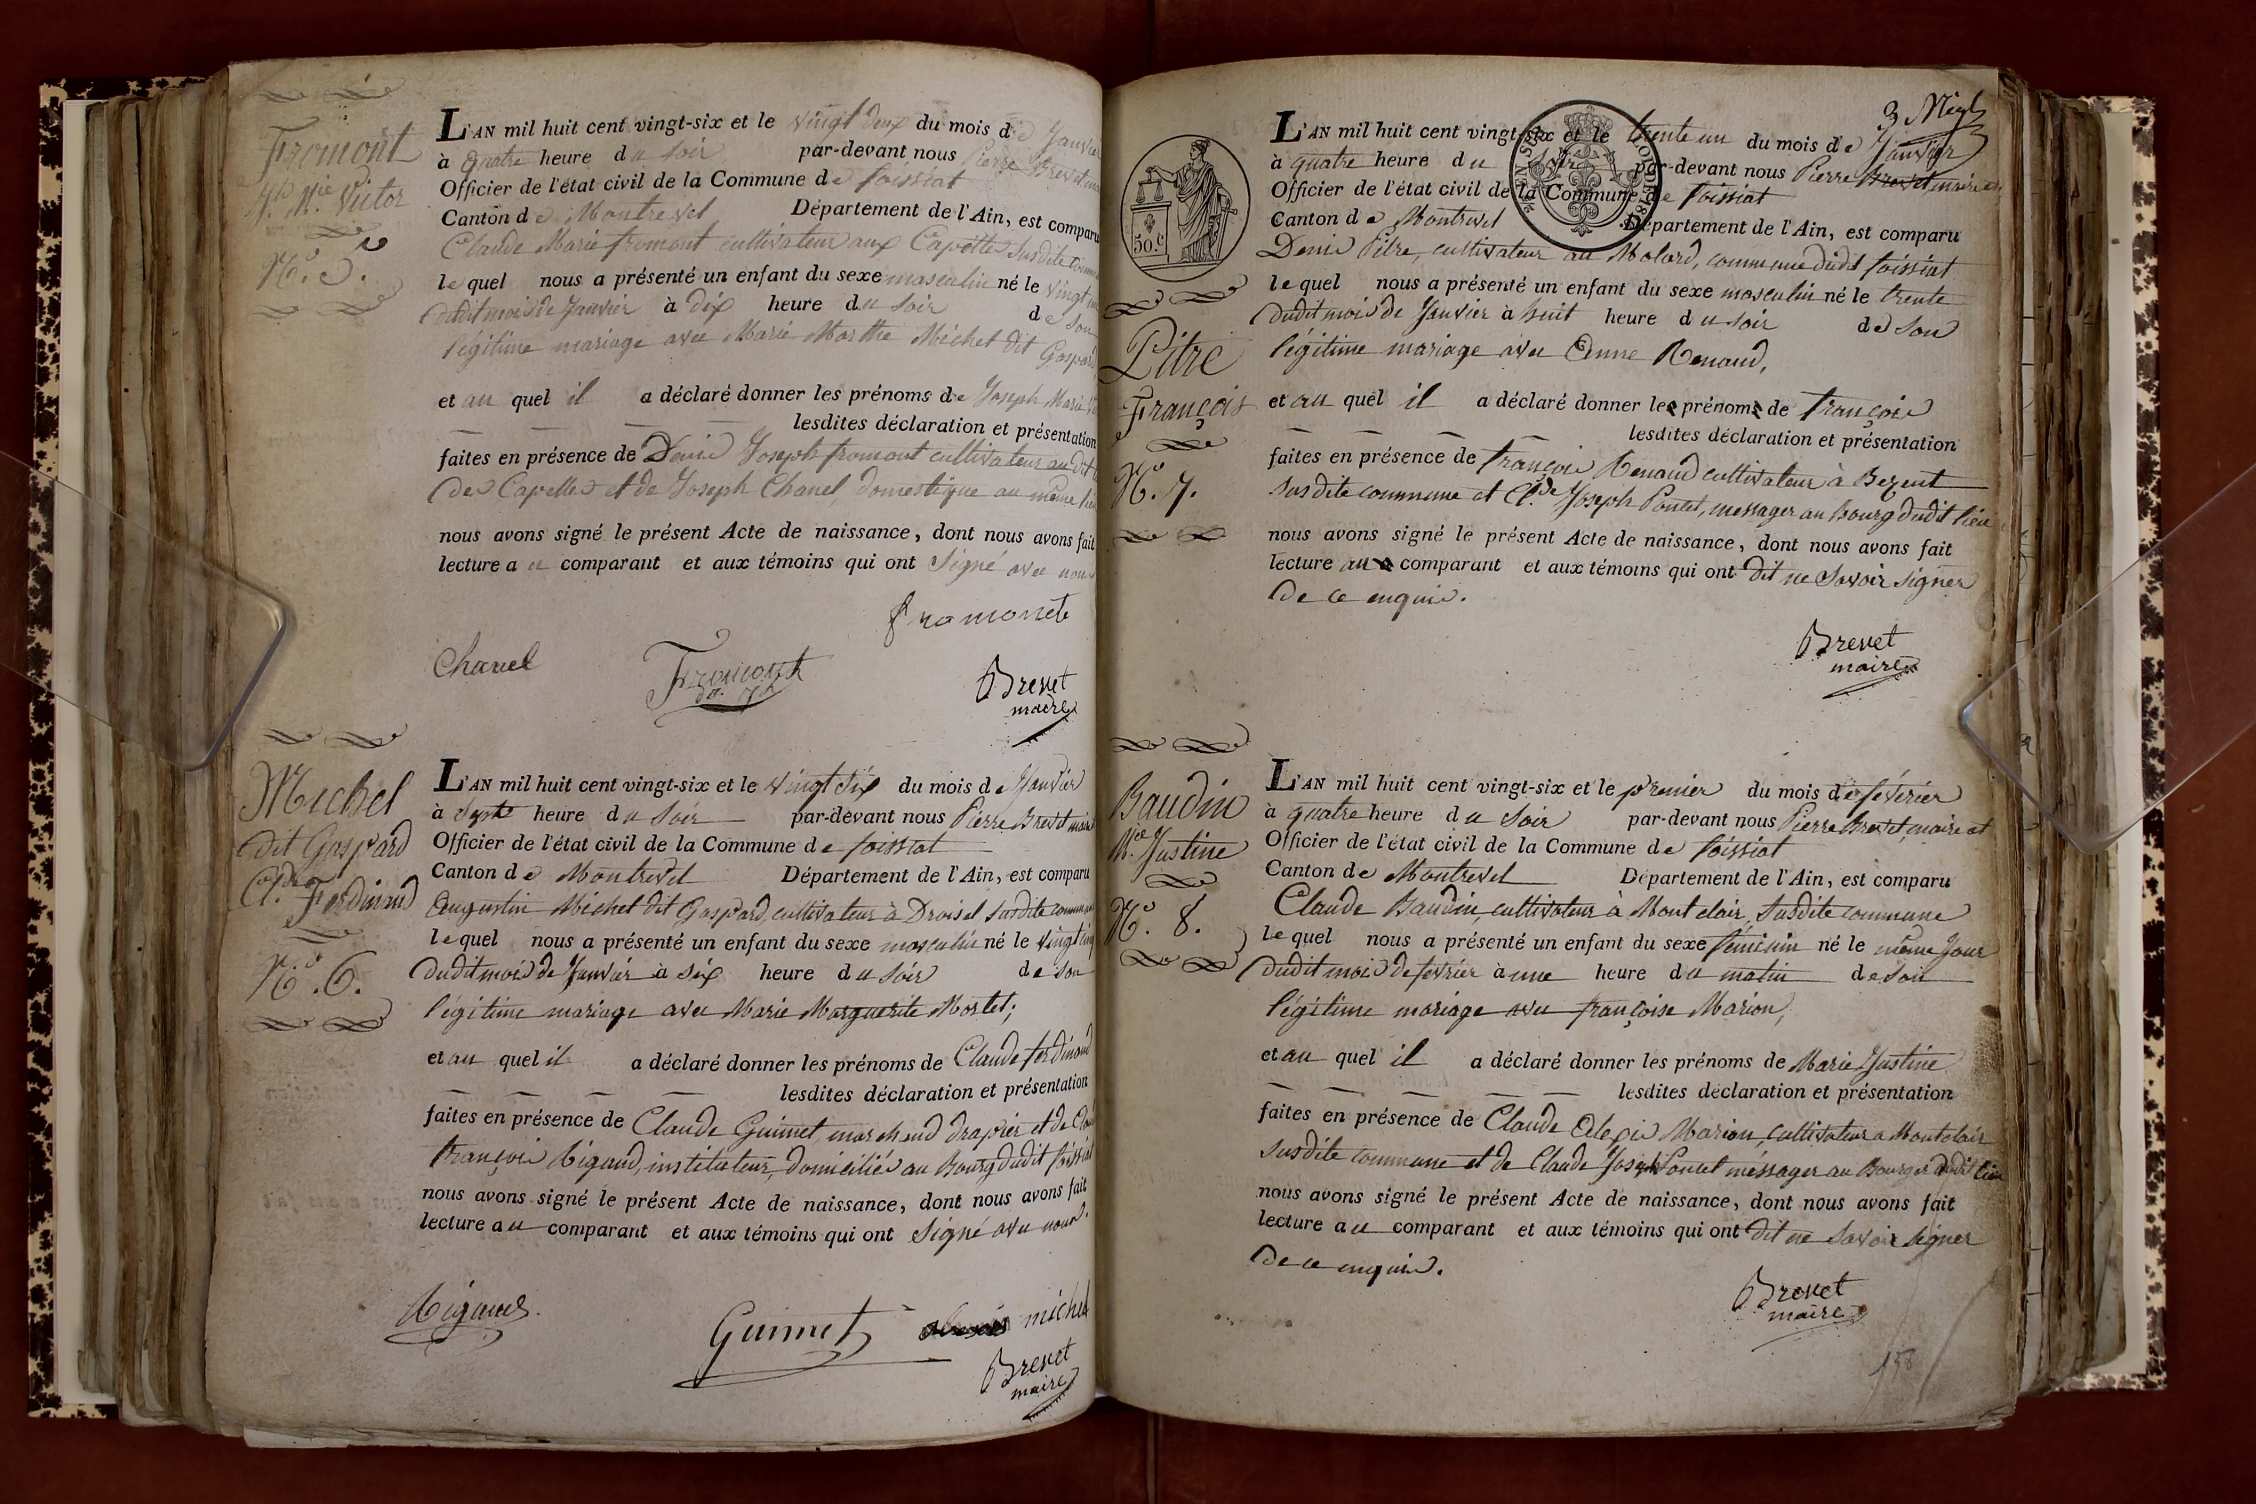 Fromont
Jh. Mie. Victor
N.° 5.
L'AN mil huit cent vingt-six et le vingt deux du mois de Janvier
à quatre heure du soir par-devant nous Pierre Brevet
Officier de l'état civil de la Commune de foissiat
Canton de Montrevel Département de l'Ain, est comparu
Claude Marie fromont cultivateur aux Capettes susdite
lequel nous a présenté un enfant du sexe masculin né le vingt
dudit mois de Janvier à dix heure du soir de son
légitime mariage avec Marie Marthe Michel dit Gaspard
et au quel il a déclaré donner les prénoms de Joseph Marie
lesdites déclaration et présentation
faites en présence de Denis Joseph fromont cultivateur au dit
des Capettes et de Joseph Chanel, domestique au même lieu
nous avons signé le présent Acte de naissance, dont nous avons fait
lecture au comparant et aux témoins qui ont signé avec nous
fromont
Chanel
Fromont
Brevet
maire
Michel
dit Gaspard
Cl.de Ferdinand
N.° 6.
L'AN mil huit cent vingt-six et le vingt six du mois de Janvier
à Septe heure du soir par-devant nous Pierre Brevet maire
Officier de l'état civil de la Commune de foissiat
Canton de Montrevel Département de l'Ain, est comparu
Augustin Michel dit Gaspard, cultivateur à Droisel susdite commune
lequel nous a présenté un enfant du sexe masculin né le vingt cinq
dudit mois de Janvier à six heure du soir de son
légitime mariage avec Marie Marguerite Mortel;
et au quel il a déclaré donner les prénoms de Claude ferdinand
lesdites déclaration et présentation
faites en présence de Claude Guimet, marchand drapier et de
françois Rigaud, instituteur, domiciliés au Bourg dudit foissiat
nous avons signé le présent Acte de naissance, dont nous avons fait
lecture au comparant et aux témoins qui ont signé avec nous.
Rigaud
Guimet michel
Brevet
maire
3
L'AN mil huit cent vingt-six et le trente un du mois de Janvier
à quatre heure du soir par-devant nous Pierre Brevet maire et
Officier de l'état civil de la Commune de foissiat
Canton de Montrevel Département de l'Ain, est comparu
50.c
Denis Pitre, cultivateur au Molard, commune dudit foissiat
lequel nous a présenté un enfant du sexe masculin né le trente
dudit mois de Janvier à huit heure du soir de son
Pitre
François
N.° 7.
légitime mariage avec Anne Renaud,
et au quel il a déclaré donner les prénoms de françois
lesdites déclaration et présentation
faites en présence de françois Renaud cultivateur à Bezent
susdite commune et Cl.de Joseph Poncet, messager au bourg dudit lieu
nous avons signé le présent Acte de naissance, dont nous avons fait
lecture au comparant et aux témoins qui ont dit ne savoir signer
de ce enquis.
Brevet
maire
Baudin
Mie. Justine
N.° 8.
L'AN mil huit cent vingt-six et le premier du mois de février
à quatre heure du soir par-devant nous Pierre Brevet, maire et
Officier de l'état civil de la Commune de foissiat
Canton de Montrevel Département de l'Ain, est comparu
Claude Baudin, cultivateur à Montclair, susdite commune
lequel nous a présenté un enfant du sexe féminin né le même jour
dudit mois de fevrier à une heure du matin de son
légitime mariage avec françoise Marion,
et au quel il a déclaré donner les prénoms de Marie Justine
lesdites déclaration et présentation
faites en présence de Claude Alexis Marion, cultivateur a Montclair
susdite commune et de Claude Joseph Poncet méssager au Bourg dudit lieu
nous avons signé le présent Acte de naissance, dont nous avons fait
lecture au comparant et aux témoins qui ont dit ne savoir signer
de ce enquis.
Brevet
maire
158